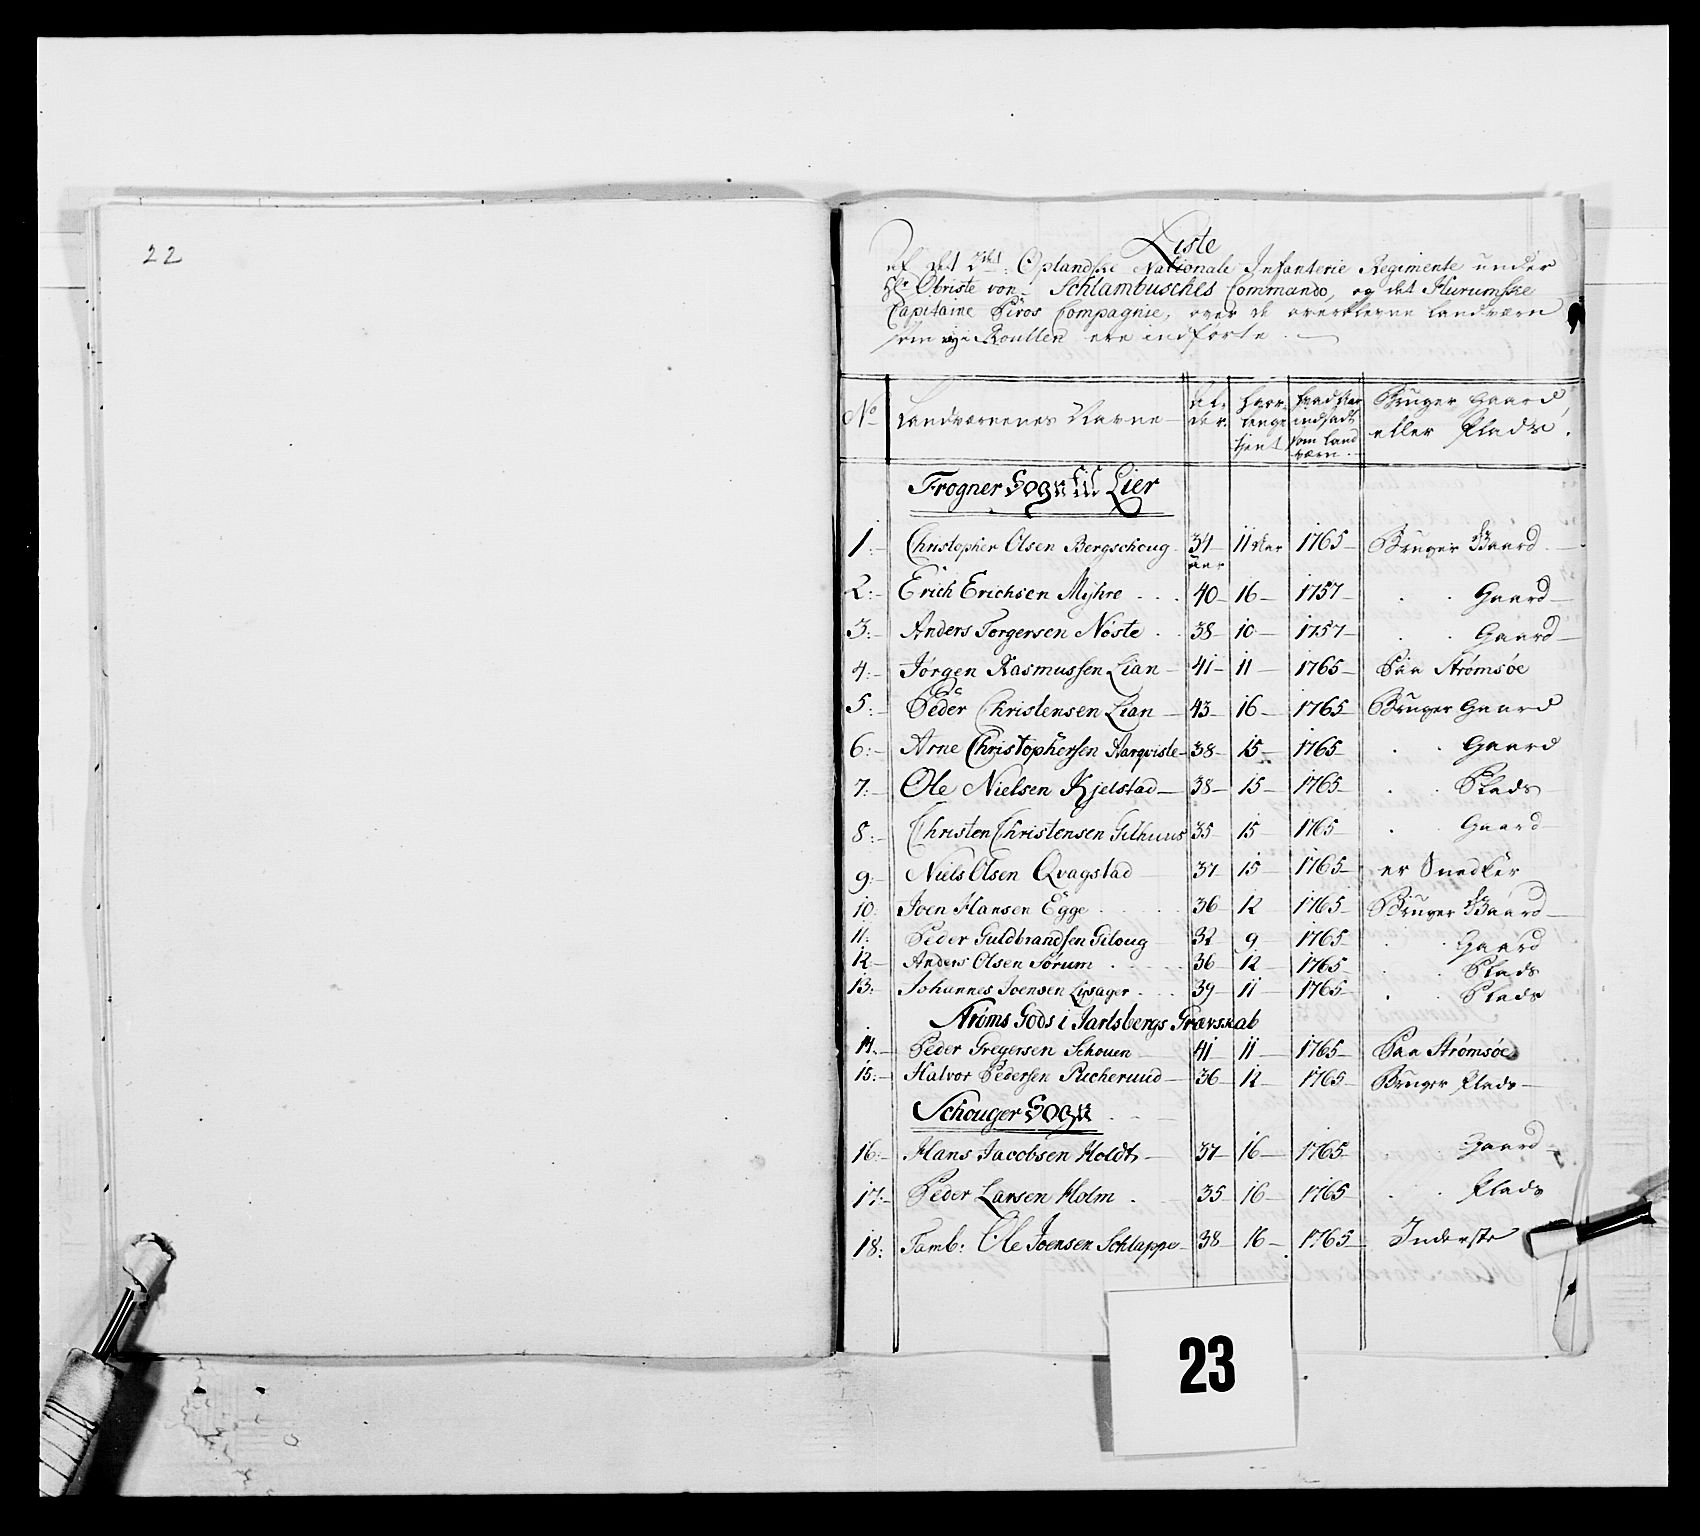 22
Liste
af det 2det Oplandske Nationale Infanterie Regimente under
Hr Obriste von Schlambusches Commando, og det Hurumske
Capitaine Biros Compagnie, over de overblevne landværn
som ey i Roullen ere indførte.
No
Landværnenes Navne
Al-
der.
Hvor
længe
tjent
Hvad Aar
indsadt
som Land
værn.
Bruger Gaard,
eller Plads.
Frogner Sogn til Lier
1. Christopher Olsen Bergschoug 34 aar 11 Aar 1765 Bruger Gaard
2. Erich Erichsen Myhre 40 16 1757 Gaard
3. Anders Torgersen Nøste 38 10 1757 Gaard
4. Jørgen Rasmussen Lian 41 11 1765 Paa Strømsøe
5. Peder Christensen Lian 43 16 1765 Bruger Gaard
6. Arne Christophersen Aarqvisle 38 15 1765 Gaard
7. Ole Nielsen Kjelstad 38 15 1765 Plads
8. Christen Christensen Gilhuus 35 15 1765 Gaard
9. Niels Olsen Qvagstad 37 15 1765 er Snedker
10. Joen Hansen Egge 36 12 1765 Bruger Gaard
11. Peder Guldbrandsen Giloug 32 9 1765 Gaard
12. Anders Olsen Sørum 36 12 1765 Plads
13. Johannes Joensen Lysager 39 11 1765 Plads
Strøms Gods i Jarlsbergs Grævskab
14. Peder Gregersen Schouen 41 11 1765 Paa Strømsøe
15. Halvor Pedersen Rucherund 36 12 1765 Bruger Plads
Schouger Sogn
16. Hans Jacobsen Holdt 37 16 1765 Gaard
17. Peder Larsen Holm 35 16 1765 Plads
18. Tamb: Ole Joensen Schlappe 38 16 1765 Inderste
23